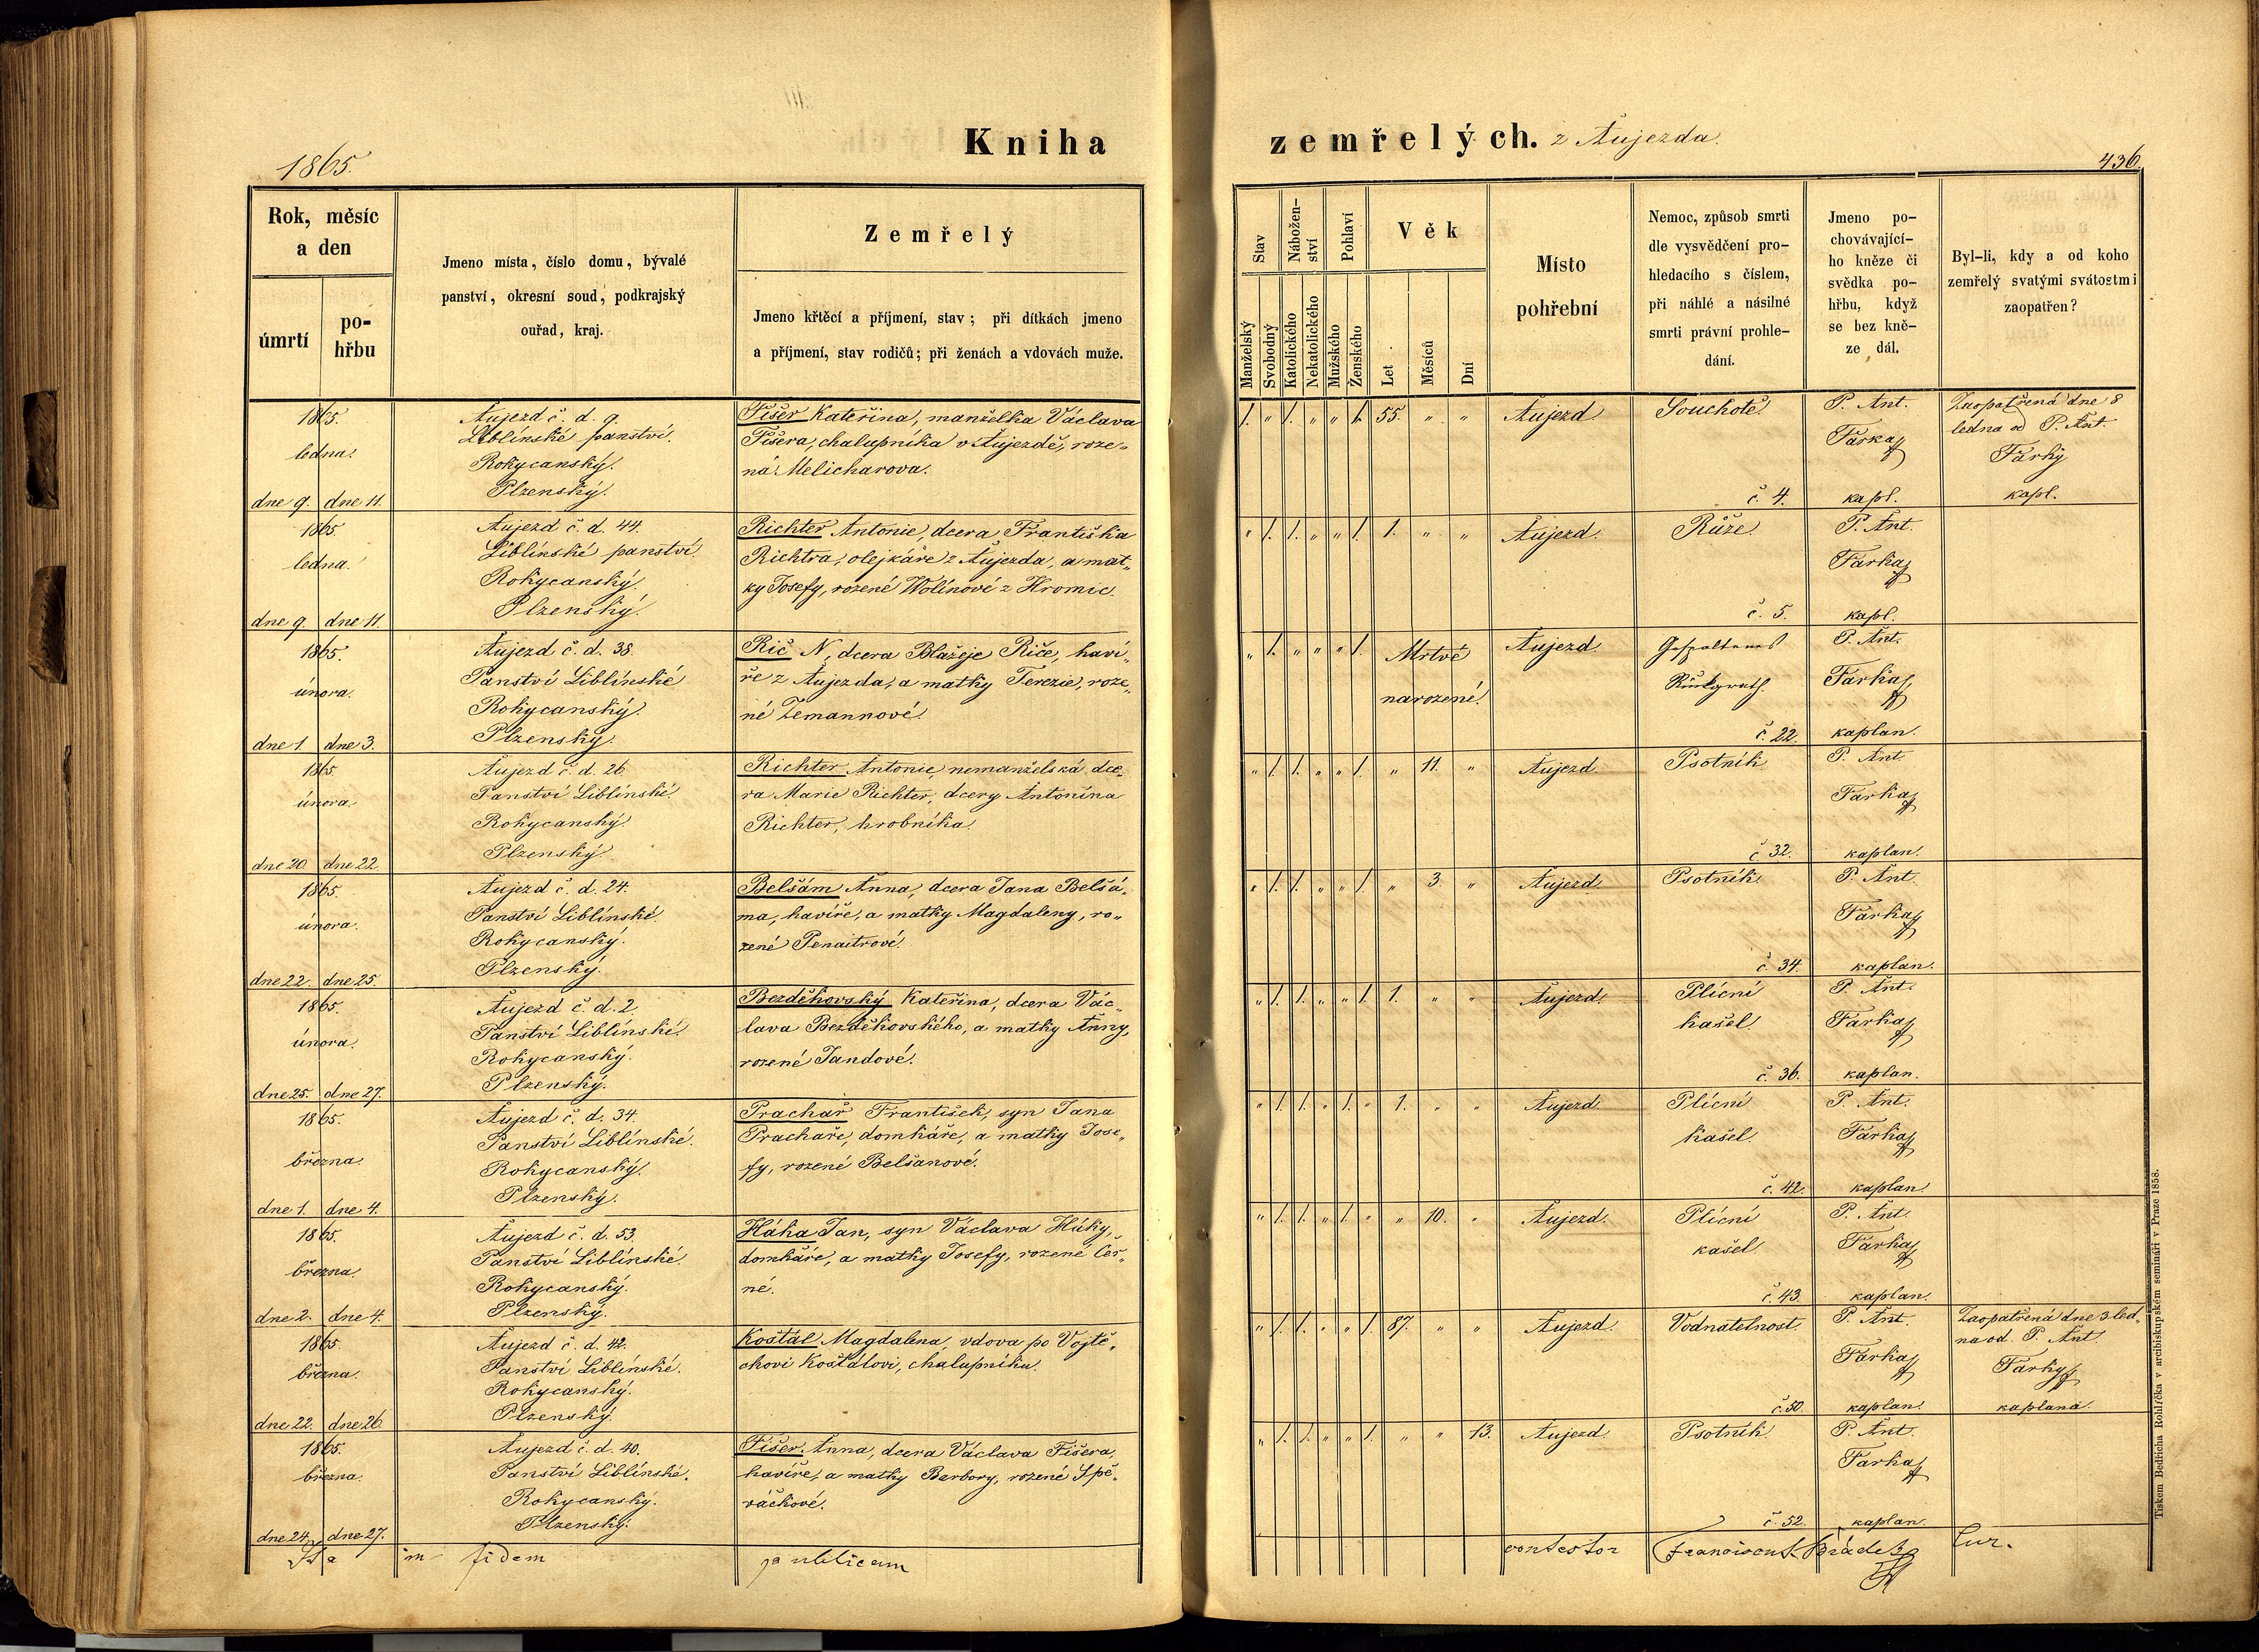 1865.
Kniha
zemřelých. z Aujezda.
436.
Rok, měsíc
a den
úmrtí
po-
hřbu
Jmeno místa, číslo domu, bývalé
panství, okresní soud, podkrajský
ouřad, kraj.
Zemřelý
Jmeno křtěcí a příjmení, stav; při dítkách jmeno
a příjmení, stav rodičů; při ženách a vdovách muže.
Stav
Manželský
Svobodný
Nábožen-
ství
Katolického
Nekatolického
Pohlaví
Mužského
Ženského
Věk
Let
Měsíců
Dní
Místo
pohřební
Nemoc, způsob smrti
dle vysvědčení pro-
hledacího s číslem,
při náhlé a násilné
smrti právní prohle-
dání.
Jmeno po-
chovávající-
ho kněze či
svědka po-
hřbu, když
se bez kně-
ze dál.
Byl-li, kdy a od koho
zemřelý svatými svátostmi
zaopatřen?
1865.
ledna.
dne 9. dne 11.
Aujezd č. d. 9.
Liblínské panství.
Rokycanský.
Plzenský.
Fišer Kateřina, manželka Václava
Fišera, chalupníka v Aujezdě, roze-
ná Melicharova.
1. „ 1. „ „ 1. 55. „ „
Aujezd.
Souchotě.
č. 4.
P. Ant.
Farka
kapl.
Zaopatřená dne 8
ledna od P. Ant.
Farky
kapl.
1865.
ledna.
dne 9. dne 11.
Aujezd č. d. 44.
Liblínské panství.
Rokycanský.
Plzenský.
Richter Antonie, dcera Františka
Richtra, olejkáře z Aujezda, a mat-
ky Josefy, rozené Wolínové z Hromic.
„ 1. 1. „ „ 1. 1. „ „
Aujezd.
Růže.
č. 5.
P. Ant.
Farka
kapl.
1865.
února.
dne 1. dne 3.
Aujezd č. d. 38.
Panství Liblínské
Rokycanský.
Plzenský.
Rič N., dcera Blažeje Riče, haví-
ře z Aujezda, a matky Terezie, roze-
né Zemannové.
„ 1. „ „ „ 1. Mrtvě
narozené.
Aujezd
Gespaltenes
Rückgrath.
č. 22.
P. Ant.
Farka
kaplan.
1865.
února.
dne 20. dne 22.
Aujezd č. d. 26.
Panství Liblínské.
Rokycanský.
Plzenský.
Richter Antonie, nemanželská dce-
ra Marie Richter, dcery Antonína
Richter, hrobníka.
„ 1. 1. „ „ 1. „ 11. „
Aujezd.
Psotník.
č. 32.
P. Ant.
Farka
kaplan.
1865.
února.
dne 22. dne 25.
Aujezd č. d. 24.
Panství Liblínské.
Rokycanský.
Plzenský.
Belšám Anna, dcera Jana Belšá-
ma, havíře, a matky Magdaleny, ro-
zené Penaitrové.
„ 1. 1. „ „ 1. „ 3. „
Aujezd.
Psotník.
č. 34.
P. Ant.
Farka
kaplan.
1865.
února.
dne 25. dne 27.
Aujezd č. d. 2.
Panství Liblínské.
Rokycanský.
Plzenský.
Bezděkovský Kateřina, dcera Vác-
lava Bezděkovského, a matky Anny,
rozené Jandové.
„ 1. 1. „ „ 1. 1. „ „
Aujezd.
Plícní
kašel.
č. 36.
P. Ant.
Farka
kaplan.
1865.
března.
dne 1. dne 4.
Aujezd č. d. 34.
Panství Liblínské.
Rokycanský.
Plzenský.
Prachař František, syn Jana
Prachaře, domkáře, a matky Jose-
fy, rozené Belšanové.
„ 1. 1. „ 1. „ 1. „ „
Aujezd.
Plícní
kašel.
č. 42.
P. Ant.
Farka
kaplan.
1865.
března.
dne 2. dne 4.
Aujezd č. d. 53.
Panství Liblínské.
Rokycanský.
Plzenský.
Húka Jan, syn Václava Húky,
domkáře, a matky Josefy, rozené Čer-
né.
„ 1. 1. „ 1. „ „ 10. „
Aujezd.
Plícní
kašel.
č. 43.
P. Ant.
Farka
kaplan.
1865.
března.
dne 22. dne 26.
Aujezd č. d. 42.
Panství Liblínské.
Rokycanský.
Plzenský.
Košťál Magdalena, vdova po Vojtě-
chovi Košťálovi, chalupníku.
„ 1. 1. „ „ 1. 87. „ „
Aujezd.
Vodnatelnost.
č. 50.
P. Ant.
Farka
kaplan.
Zaopatřená dne 3 led-
na od P. Ant.
Farky
kaplana.
1865.
března.
dne 24. dne 27.
Aujezd č. d. 40.
Panství Liblínské.
Rokycanský.
Plzenský.
Fišer Anna, dcera Václava Fišera
havíře, a matky Barbory, rozené Spě-
váčkové.
„ 1. 1. „ „ 1. „ „ 13.
Aujezd.
Psotník.
č. 52.
P. Ant.
Farka
kaplan.
Ita in fidem publicam contestor Franciscus Hrádek Cur.
Tiskem Bedřicha Rohlíčka v arcibiskupském semináři v Praze 1858.